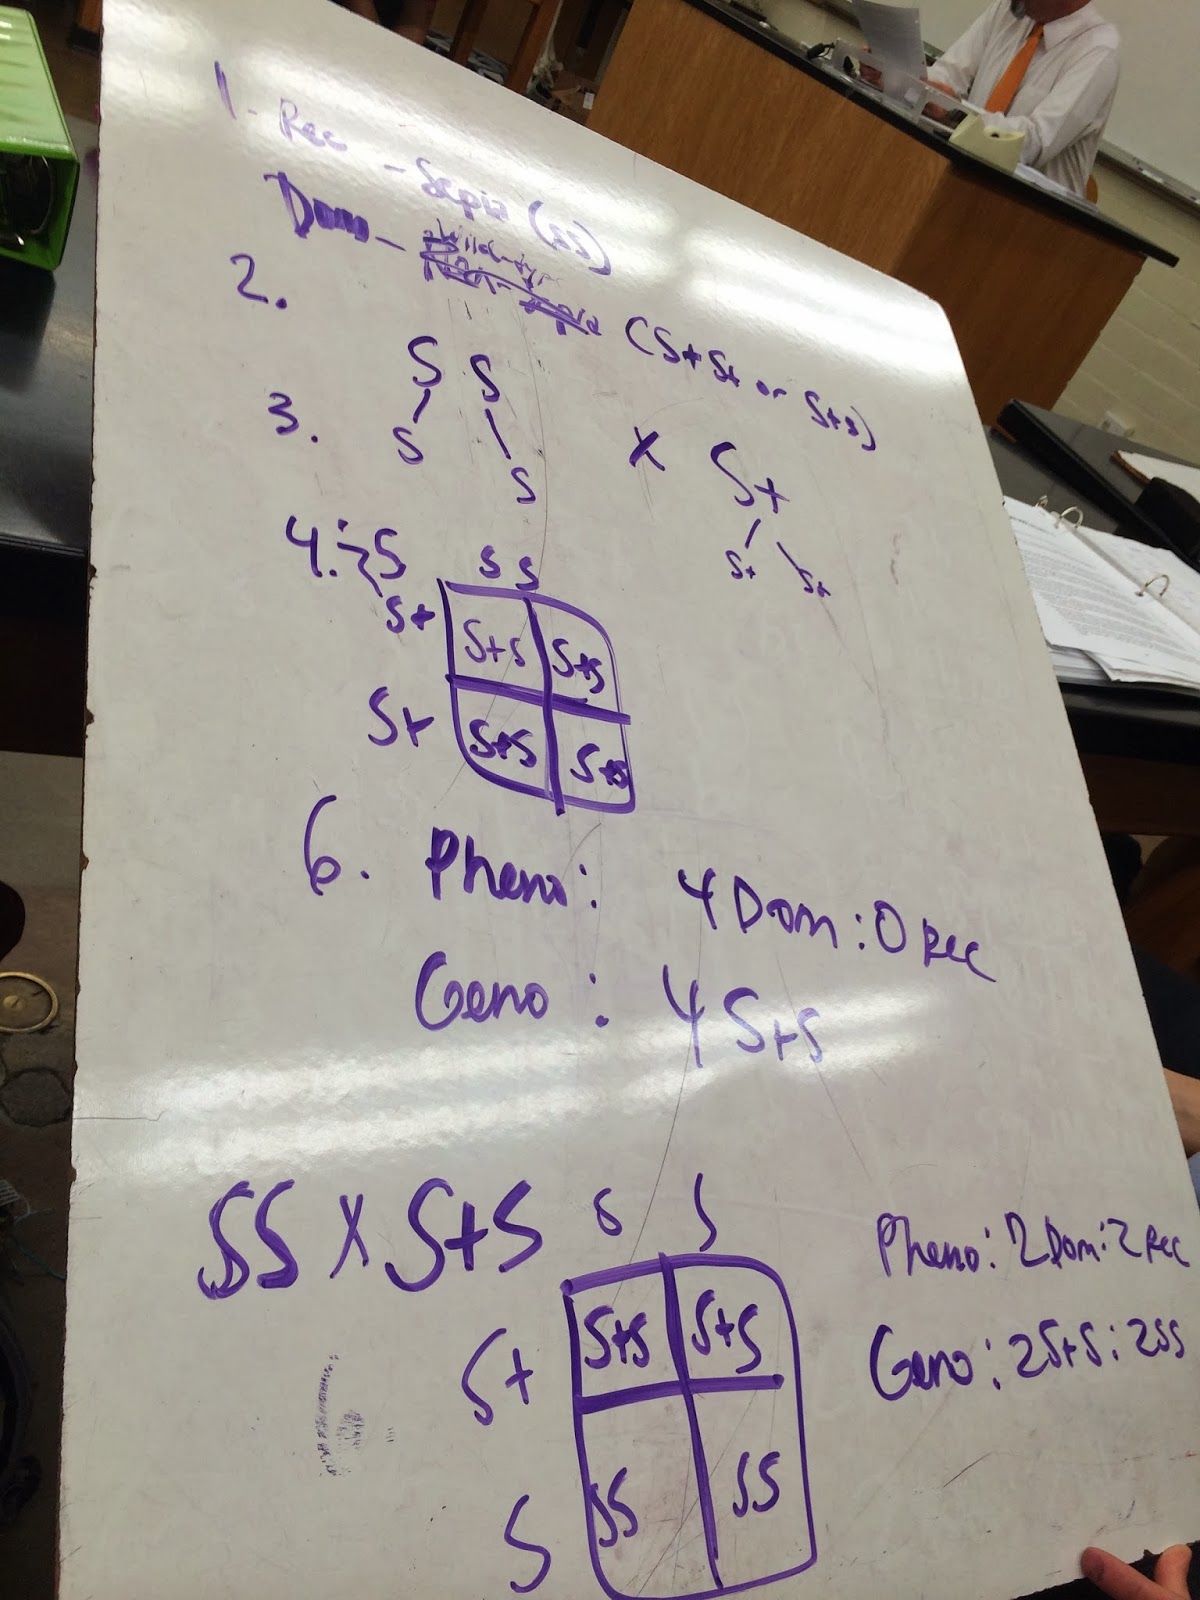 1. Rec - Sepia (ss)
Dom - Wild-type (S+S+ or S+s)
2.
S S
3. S S X S+
S+ S+
4. S
S S
S+ S+S S+S
S+ S+S S+S
6. Pheno: 4 Dom : 0 Rec
Geno : 4 S+S
SS X S+S S S
S+ S+S S+S
S SS SS
Pheno: 2 Dom: 2 Rec
Geno: 2S+S: 2SS